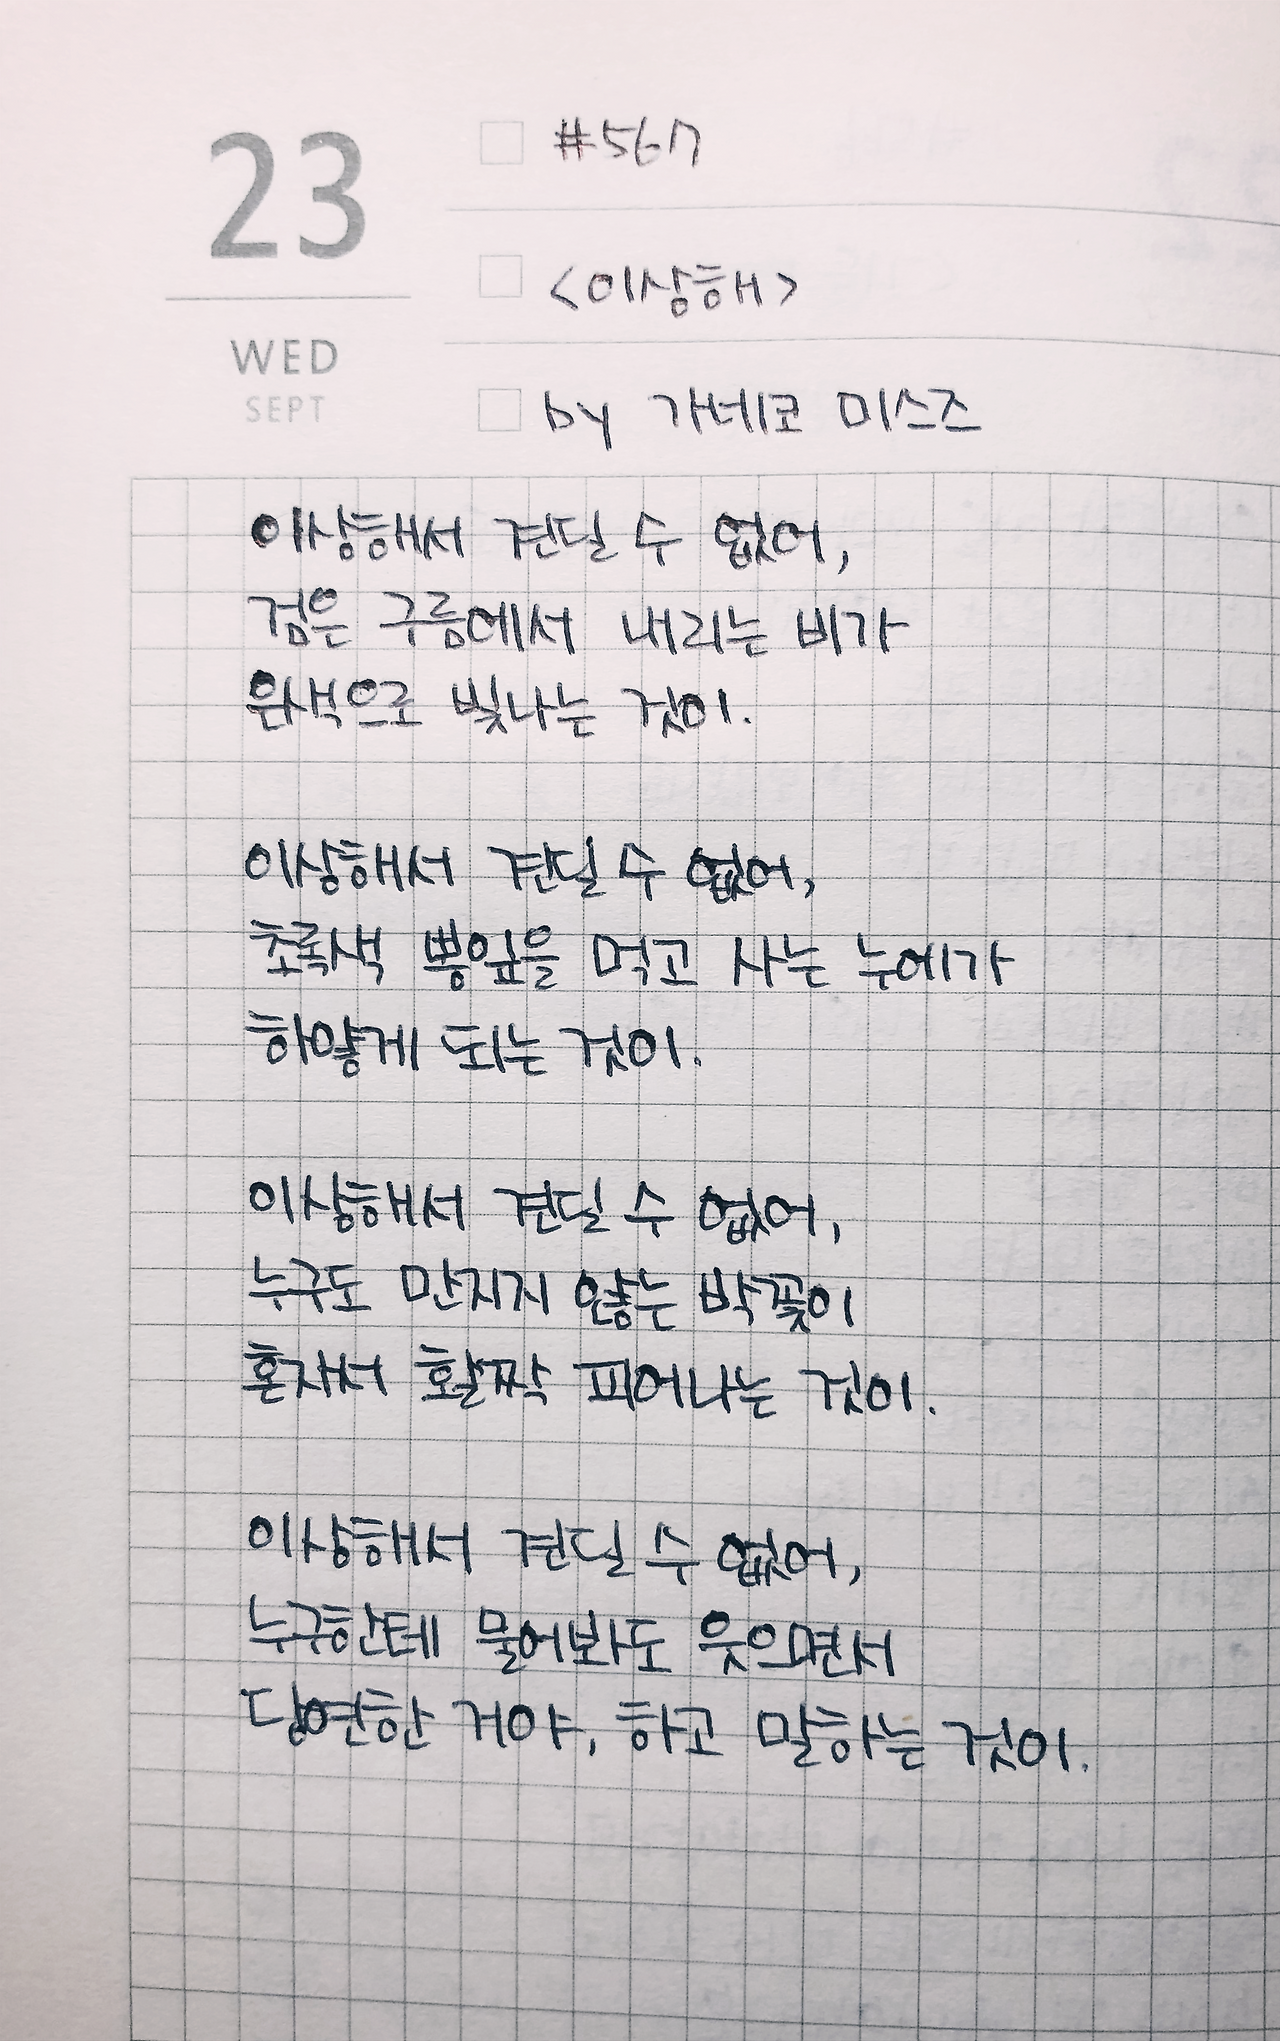 23
WED
SEPT
#567
<이상해>
by 가네코 미스즈
이상해서 견딜 수 없어,
검은 구름에서 내리는 비가
은색으로 빛나는 것이.
이상해서 견딜 수 없어,
초록색 뽕잎을 먹고 사는 누에가
하얗게 되는 것이.
이상해서 견딜 수 없어,
누구도 만지지 않는 박꽃이
혼자서 활짝 피어나는 것이.
이상해서 견딜 수 없어,
누구한테 물어봐도 웃으면서
당연한 거야, 하고 말하는 것이.